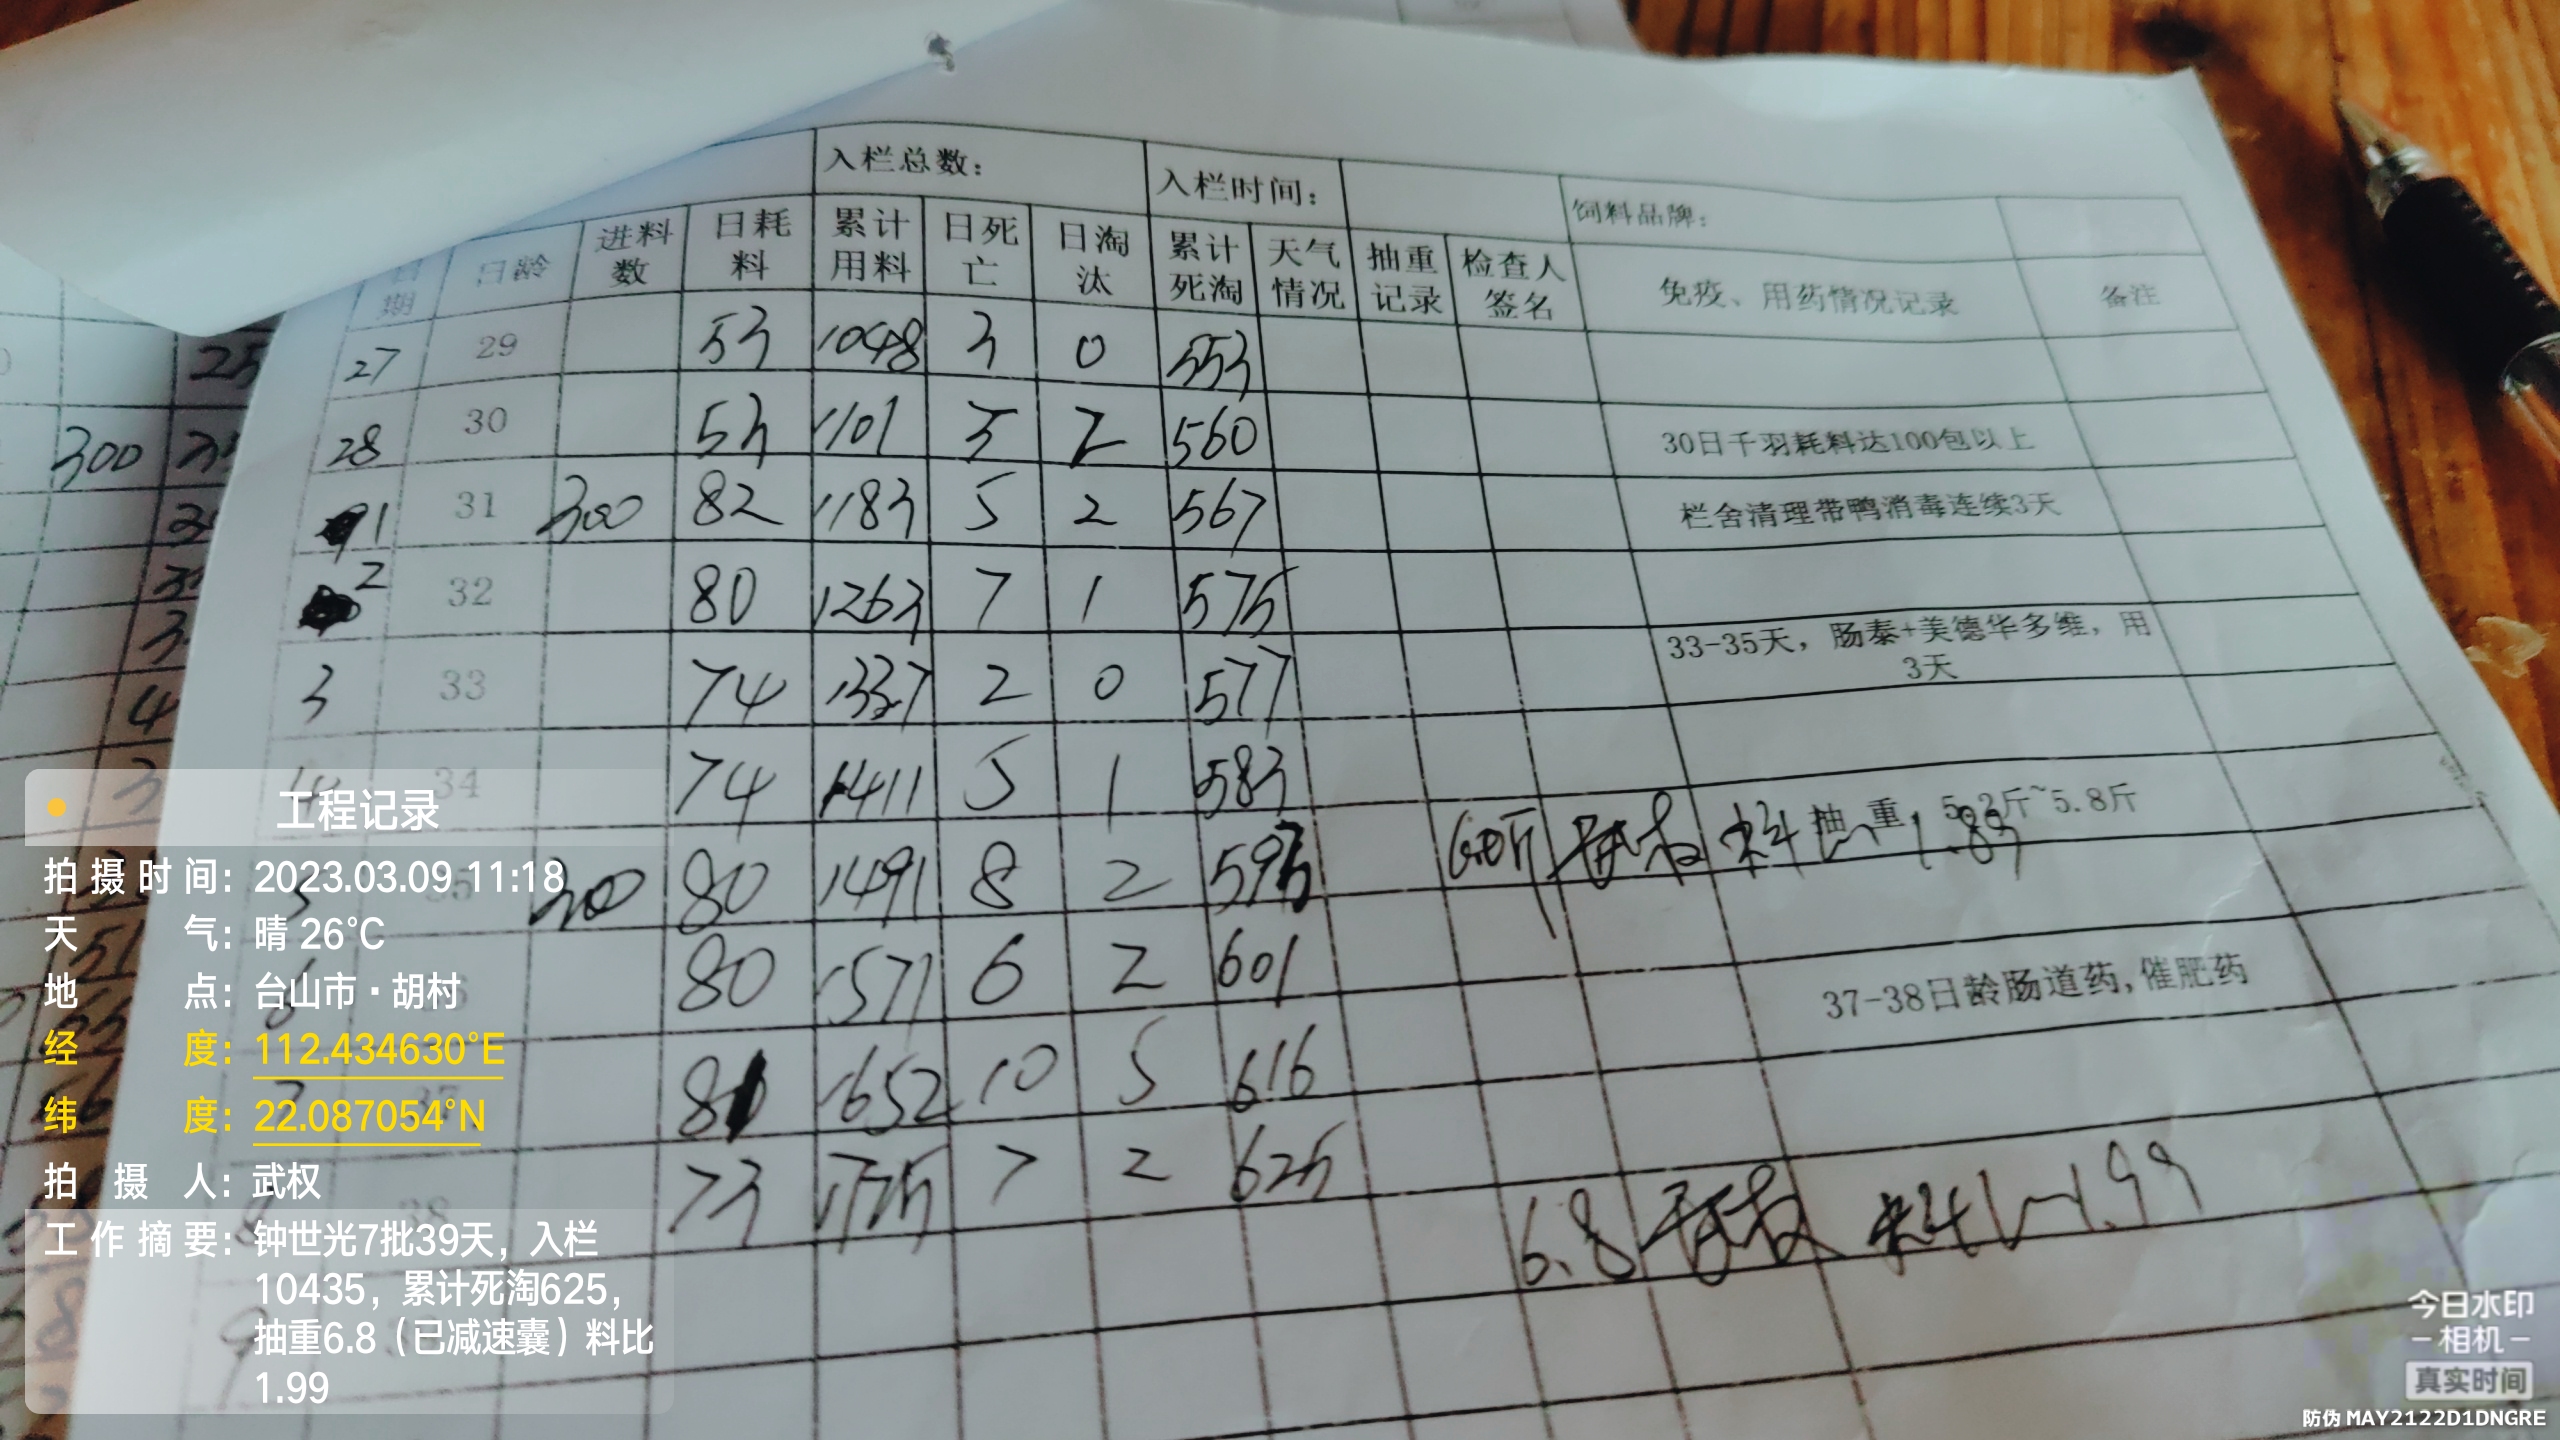 入栏总数：	入栏时间：	饲料品牌：
日期	日龄	进料数	日耗料	累计用料	日死亡	日淘汰	累计死淘	天气情况	抽重记录	检查人签名	免疫、用药情况记录	备注
27	29	53	1048	3	0	553
28	30	53	1101	5	2	560	30日千羽耗料达100包以上
1	31	300	82	1183	5	2	567	栏舍清理带鸭消毒连续3天
2	32	80	1263	7	1	575
3	33	74	1337	2	0	577	33-35天，肠泰+美德华多维，用3天
4	34	74	1411	5	1	583
5	35	300	80	1491	8	2	593	6.0斤	武权	料比 1.89	抽重 5.2斤~5.8斤
6	36	80	1571	6	2	601
7	37	81	1652	10	5	616	37-38日龄肠道药,催肥药
8	38	73	1725	7	2	625	6.8	武权	料比1.99
9
300
工程记录
拍摄时间：2023.03.09 11:18
天气：晴 26°C
地点：台山市·胡村
经度：112.434630°E
纬度：22.087054°N
拍摄人：武权
工作摘要：钟世光7批39天，入栏
10435，累计死淘625，
抽重6.8（已减速囊）料比
1.99
今日水印
-相机-
真实时间
防伪 MAY2122D1DNGRE